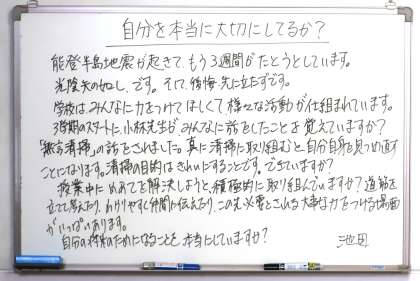 自分を本当に大切にしてるか?
能登半島地震が起きて、もう3週間がたとうとしています。
光陰矢の如し、です。そして、後悔、先に立たずです。
学校は、みんなに力をつけてほしくて様々な活動が仕組まれています。
3学期のスタートに小林先生がみんなに話をしたことを覚えていますか?
「無言清掃」の話をされました。真に清掃に取り組むと、自分自身を見つめ直す
ことになります。清掃の目的はきれいにすることです。できていますか?
授業中にめあてを解決しようと、積極的に取り組んでいますか?道筋を
立てて考えたり、わかりやすく仲間に伝えたり、この先必要とされる大事な力をつける場面
がいっぱいあります。
自分の将来のためになることを、本当にしていますか?
池田